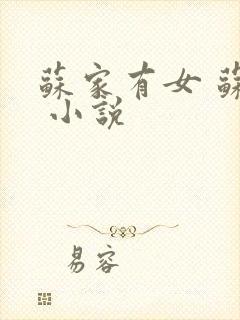 蘇家有女 蘇
小説
易容